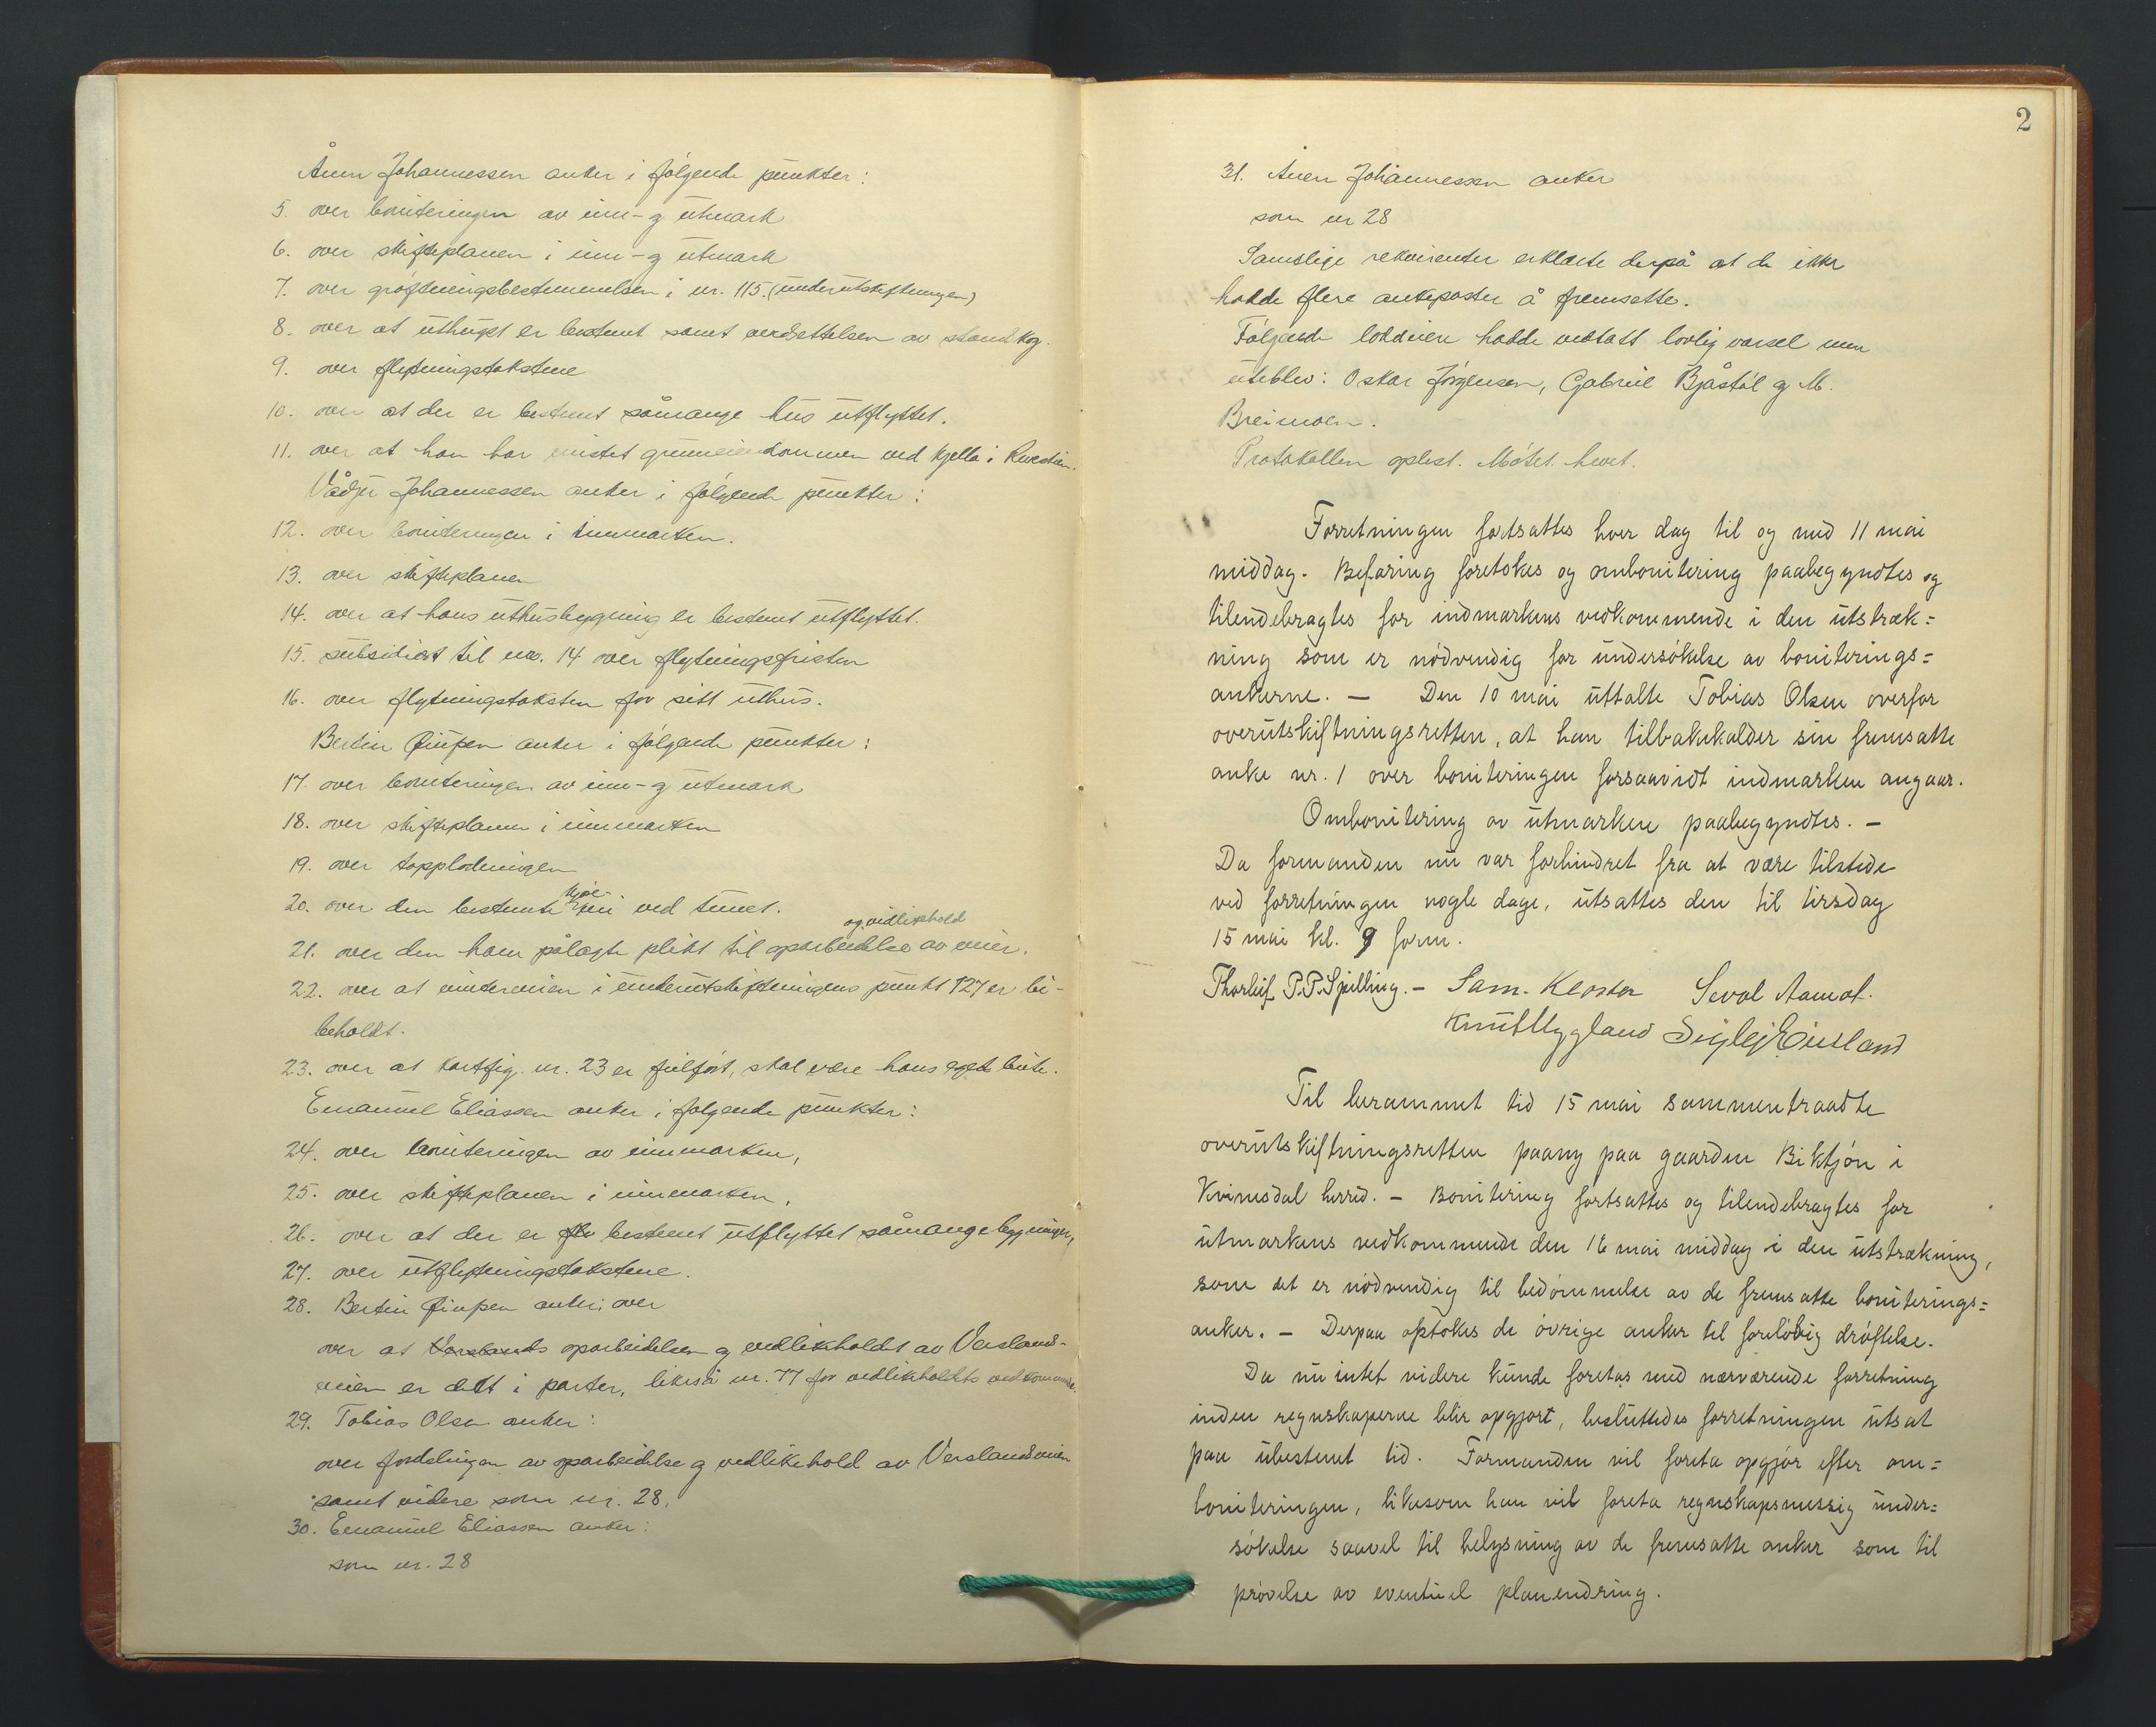 Ånen Johannessen anker i følgende punkter:
5. over boniteringen av inn- og utmark
6. over skifteplanen i inn- og utmark
7. over grøftningsbestemmelsen i nr. 115. (underutskiftningen)
8. over at uthugst er bestemt samt verdsettelsen av standskog.
9. over flytningstakstene
10. over at der er bestemt såmange hus utflyttet.
11. over at han har mistet grunneiendommen ved kjella i
Vådjer Johannessen anker i følgende punkter:
12. over boniteringen i innmarken.
13. over skifteplanen
14. over at hans uthusbygning er bestemt utflyttet.
15. subsidiært til nr. 14 over flytningsfristen
16. over flytningstaksten for sitt uthus.
Bertin anker i følgende punkter:
17. over boniteringen av inn- og utmark
18. over skifteplanen i innmarken
19. over topplodningen
20. over den bestemte vei ved tunet.
og vidlikehold
21. over den ham pålagte plikt til oparbeidelse av veier.
22. over at vinterveien i underutskiftningens punkt 127 er bi-
beholdt.
23. over at kartfig. nr. 23 er feilført, skal være hans eget beite.
Emanuel Eliassen anker i følgende punkter:
24. over boniteringen av innmarken,
25. over skifteplanen i innmarken,
26. over at der er fle bestemt utflyttet såmange bygninger,
27. over utflytningstakstene.
28. Bertin anker: over
over at Verslands oparbeidelsen og vedlikeholdet av Verslands-
veien er delt i parter, likeså nr. 77 for vedlikeholdets vedkommende.
29. Tobias Olsen anker:
over fordelingen av oparbeidelse og vedlikehold av Verslandsveien
samt videre som nr. 28.
30. Emanuel Eliassen anker:
som nr. 28
2
31. Ånen Johannessen anker
som nr 28
Samtlige rekvirenter erklærte derpå at de ikke
hadde flere ankeposter å fremsette.
Følgende loddeiere hadde vedtatt lovlig varsel men
uteblev: Oskar Jørgensen, Gabriel Bjåstøl og M.
Breimoen.
Protokollen oplest. Møtet hevet.
Forretningen fortsattes hver dag til og med 11 mai
middag. Befaring foretokes og ombonitering paabegyndtes og
tilendebragtes for indmarkens vedkommende i den utstræk=
ning som er nødvendig for undersøkelse av boniterings=
ankerne. — Den 10 mai uttalte Tobias Olsen overfor
overutskiftningsretten, at han tilbakekalder sin fremsatte
anke nr. 1 over boniteringen forsaavidt indmarken angaar.
Ombonitering av utmarken paabegyndtes. —
Da formanden nu var forhindret fra at være tilstede
ved forretningen nogle dage, utsattes den til tirsdag
15 mai kl. 9 form.
Thorleif P.P. Spilling. — Sam. Kloster Seval Aamot.
Knut Nygland Siglej Eiesland
Til berammet tid 15 mai sammentraadte
overutskiftningsretten paany paa gaarden Biktjøn i
Kvinesdal herred. — Bonitering fortsattes og tilendebragtes for
utmarkens vedkommende den 16 mai middag i den utstrækning,
som det er nødvendig til bedømmelse av de fremsatte boniterings=
anker. — Derpaa optokes de øvrige anker til foreløbig drøftelse.
Da nu intet videre kunde foretas med nærværende forretning
inden regnskaperne blir opgjort, besluttedes forretningen utsat
paa ubestemt tid. Formanden vil foreta opgjør efter om=
boniteringen, likesom han vil foreta regnskapsmessig under=
søkelse saavel til belysning av de fremsatte anker som til
prøvelse av eventuel planendring.